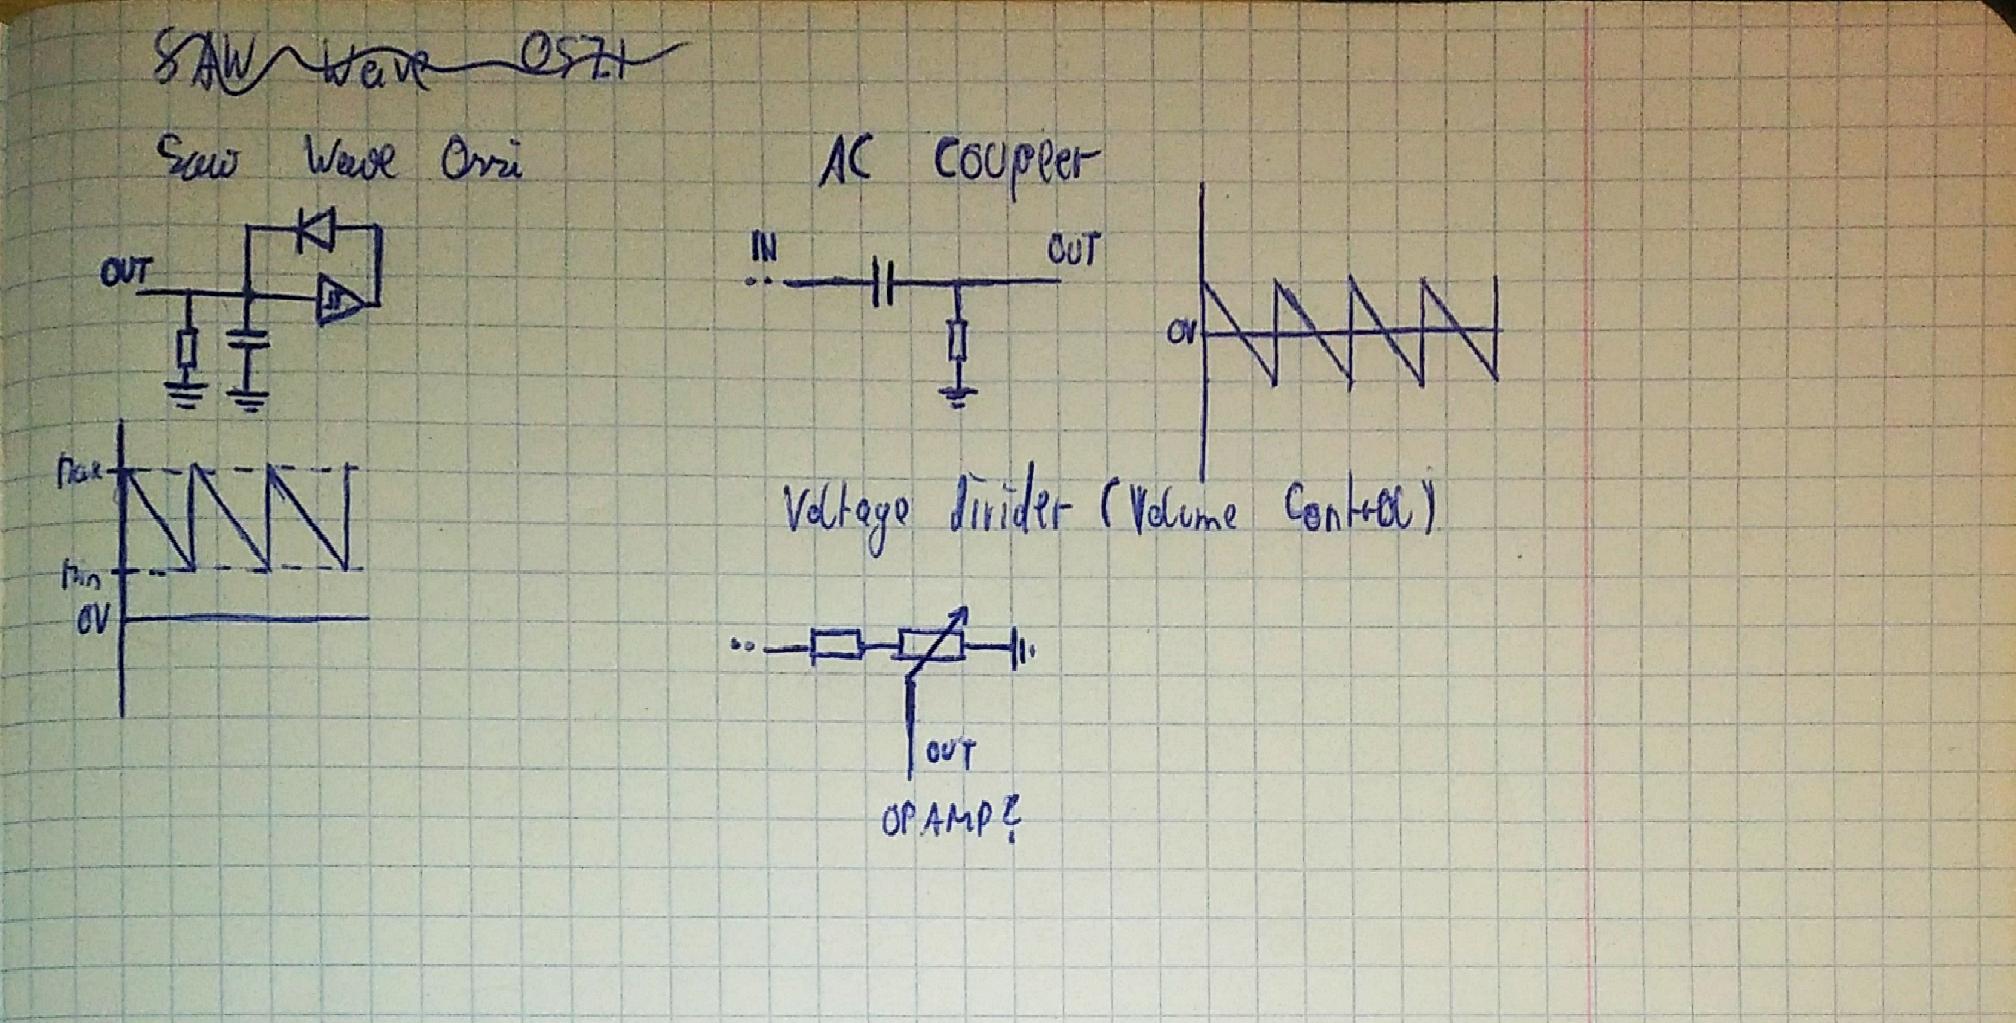 SAW Wave OSZI
Saw Wave Oszi
OUT
Max
Min
0V
AC Coupler
IN
OUT
0V
Voltage divider (Volume Control)
OUT
OP AMP?